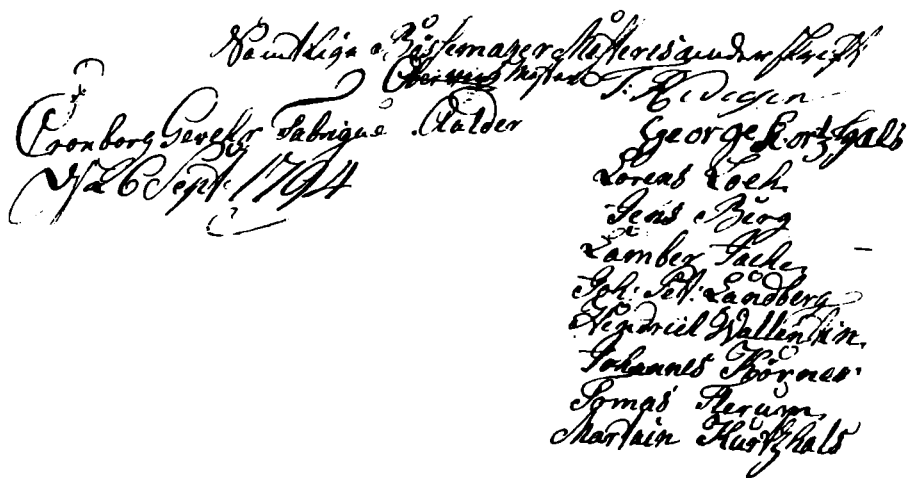 Samtlige Bössemager Mesteres under skrift
Cronborg Gevehr Fabrique
6 Sept: 1794
George Kortzhals
Lorens Loch
Jens Burg
Lamber Facke
Joh: Pet: Lundberg
Hendrich Wallentin
Johannes Körner
Tomas Flerum
Martain Kurtzhals